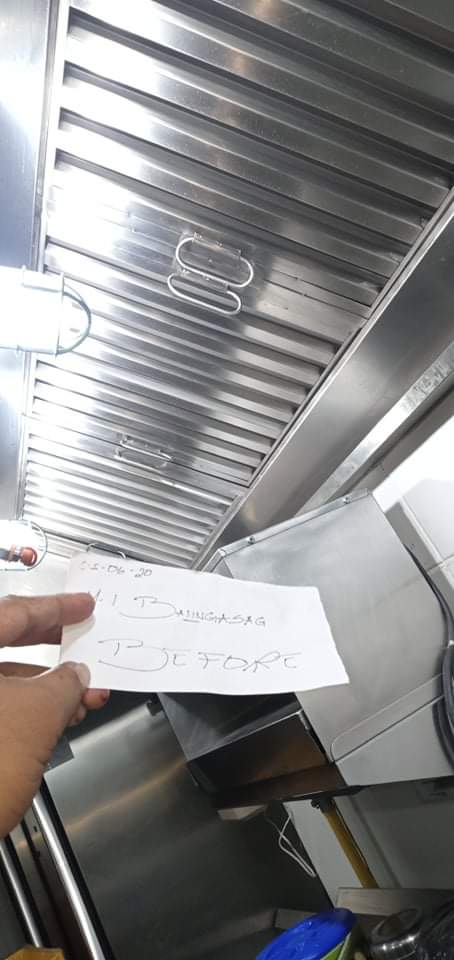 -06-20
.I BALINGASAG
BEFORE